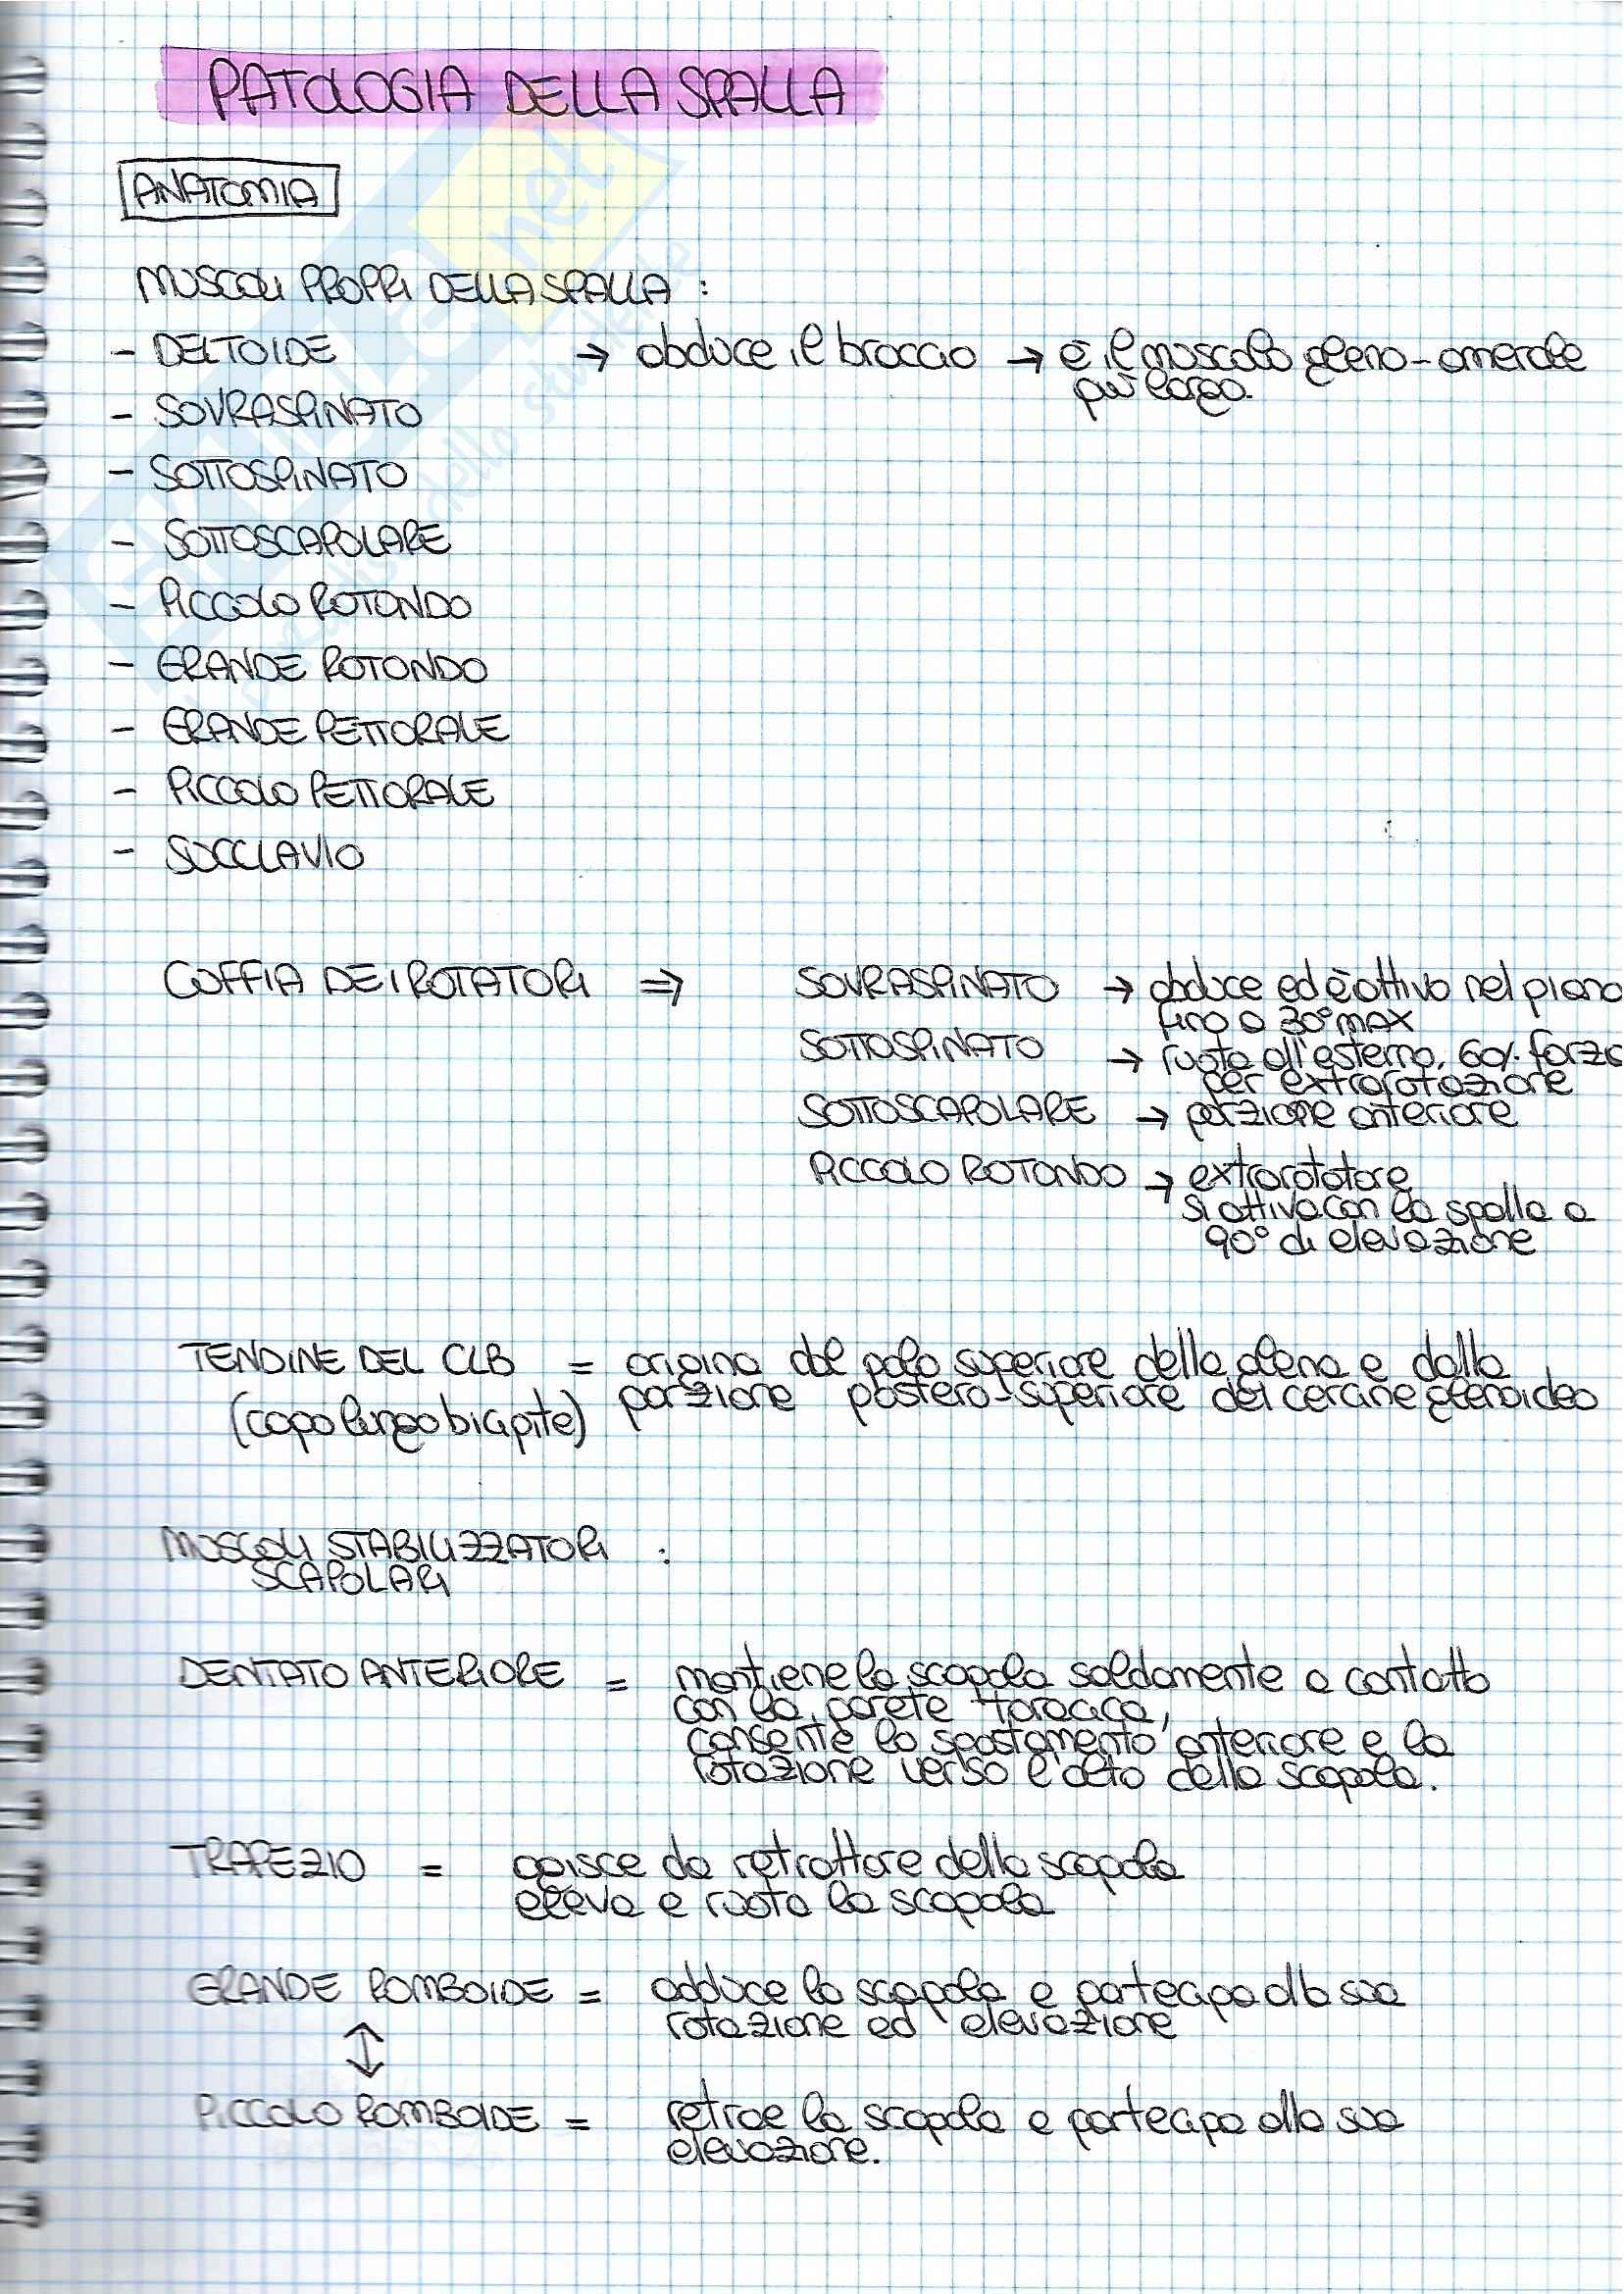 PATOLOGIA DELLA SPALLA
ANATOMIA
MUSCOLI PROPRI DELLA SPALLA :
- DELTOIDE → abduce il braccio → è il muscolo gleno-omerale
più largo.
- SOVRASPINATO
- SOTTOSPINATO
- SOTTOSCAPOLARE
- PICCOLO ROTONDO
- GRANDE ROTONDO
- GRANDE PETTORALE
- PICCOLO PETTORALE
- SUCCLAVIO
COFFIA DEI ROTATORI ⇒ SOVRASPINATO → abduce ed è attivo nel piano
fino a 30° MAX
SOTTOSPINATO → ruota all'esterno, 60% forza
per extrarotazione
SOTTOSCAPOLARE → porzione anteriore
PICCOLO ROTONDO → extrarotatore
si attiva con la spalla a
90° di elevazione
TENDINE DEL CLB = origina dal polo superiore della glena e dalla
(capo lungo bicipite) porzione postero-superiore del cercine glenoideo
MUSCOLI STABILIZZATORI :
SCAPOLARI
DENTATO ANTERIORE = mantiene la scapola saldamente a contatto
con la parete toracica,
consente lo spostamento anteriore e la
rotazione verso l'alto della scapola.
TRAPEZIO = agisce da retrattore della scapola
eleva e ruota la scapola
GRANDE ROMBOIDE = adduce la scapola e partecipa alla sua
rotazione ed elevazione
↕
PICCOLO ROMBOIDE = retrae la scapola e partecipa alla sua
elevazione.